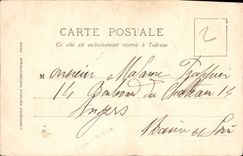 CARTE POSTALE
Ce côté est exclusivement réservé à l'adresse
2
Monsieur Madame
14 Boulevard du Château 14
Angers
Maine et Loire